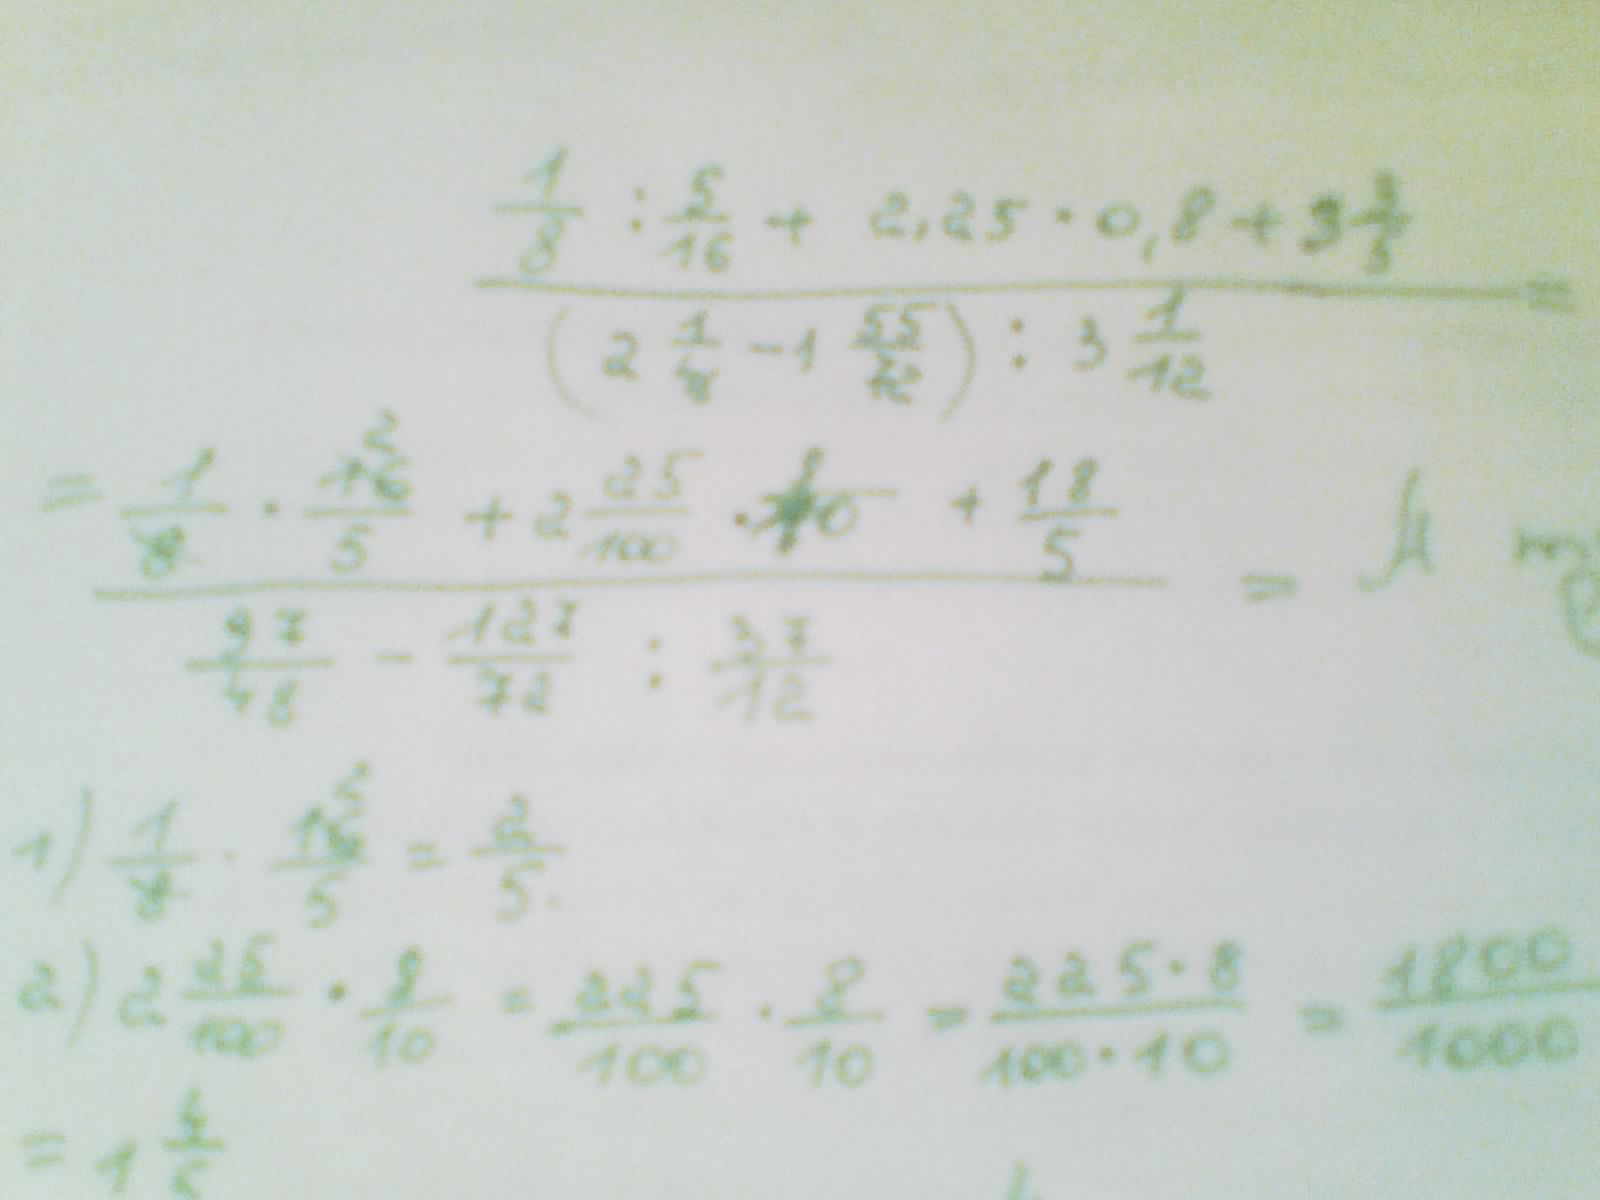 1/8 : 5/16 + 2,25 · 0,8 + 3 3/5 =
(2 1/48 - 1 55/72) : 3 1/12
= 1/8 · 16/5 2 + 2 25/100 · 8/10 + 18/5 =
97/48 - 127/72 : 37/12
1) 1/8 · 16/5 2 = 2/5.
2) 2 25/100 · 8/10 = 225/100 · 8/10 = 225·8/100·10 = 1800/1000
= 1 4/5